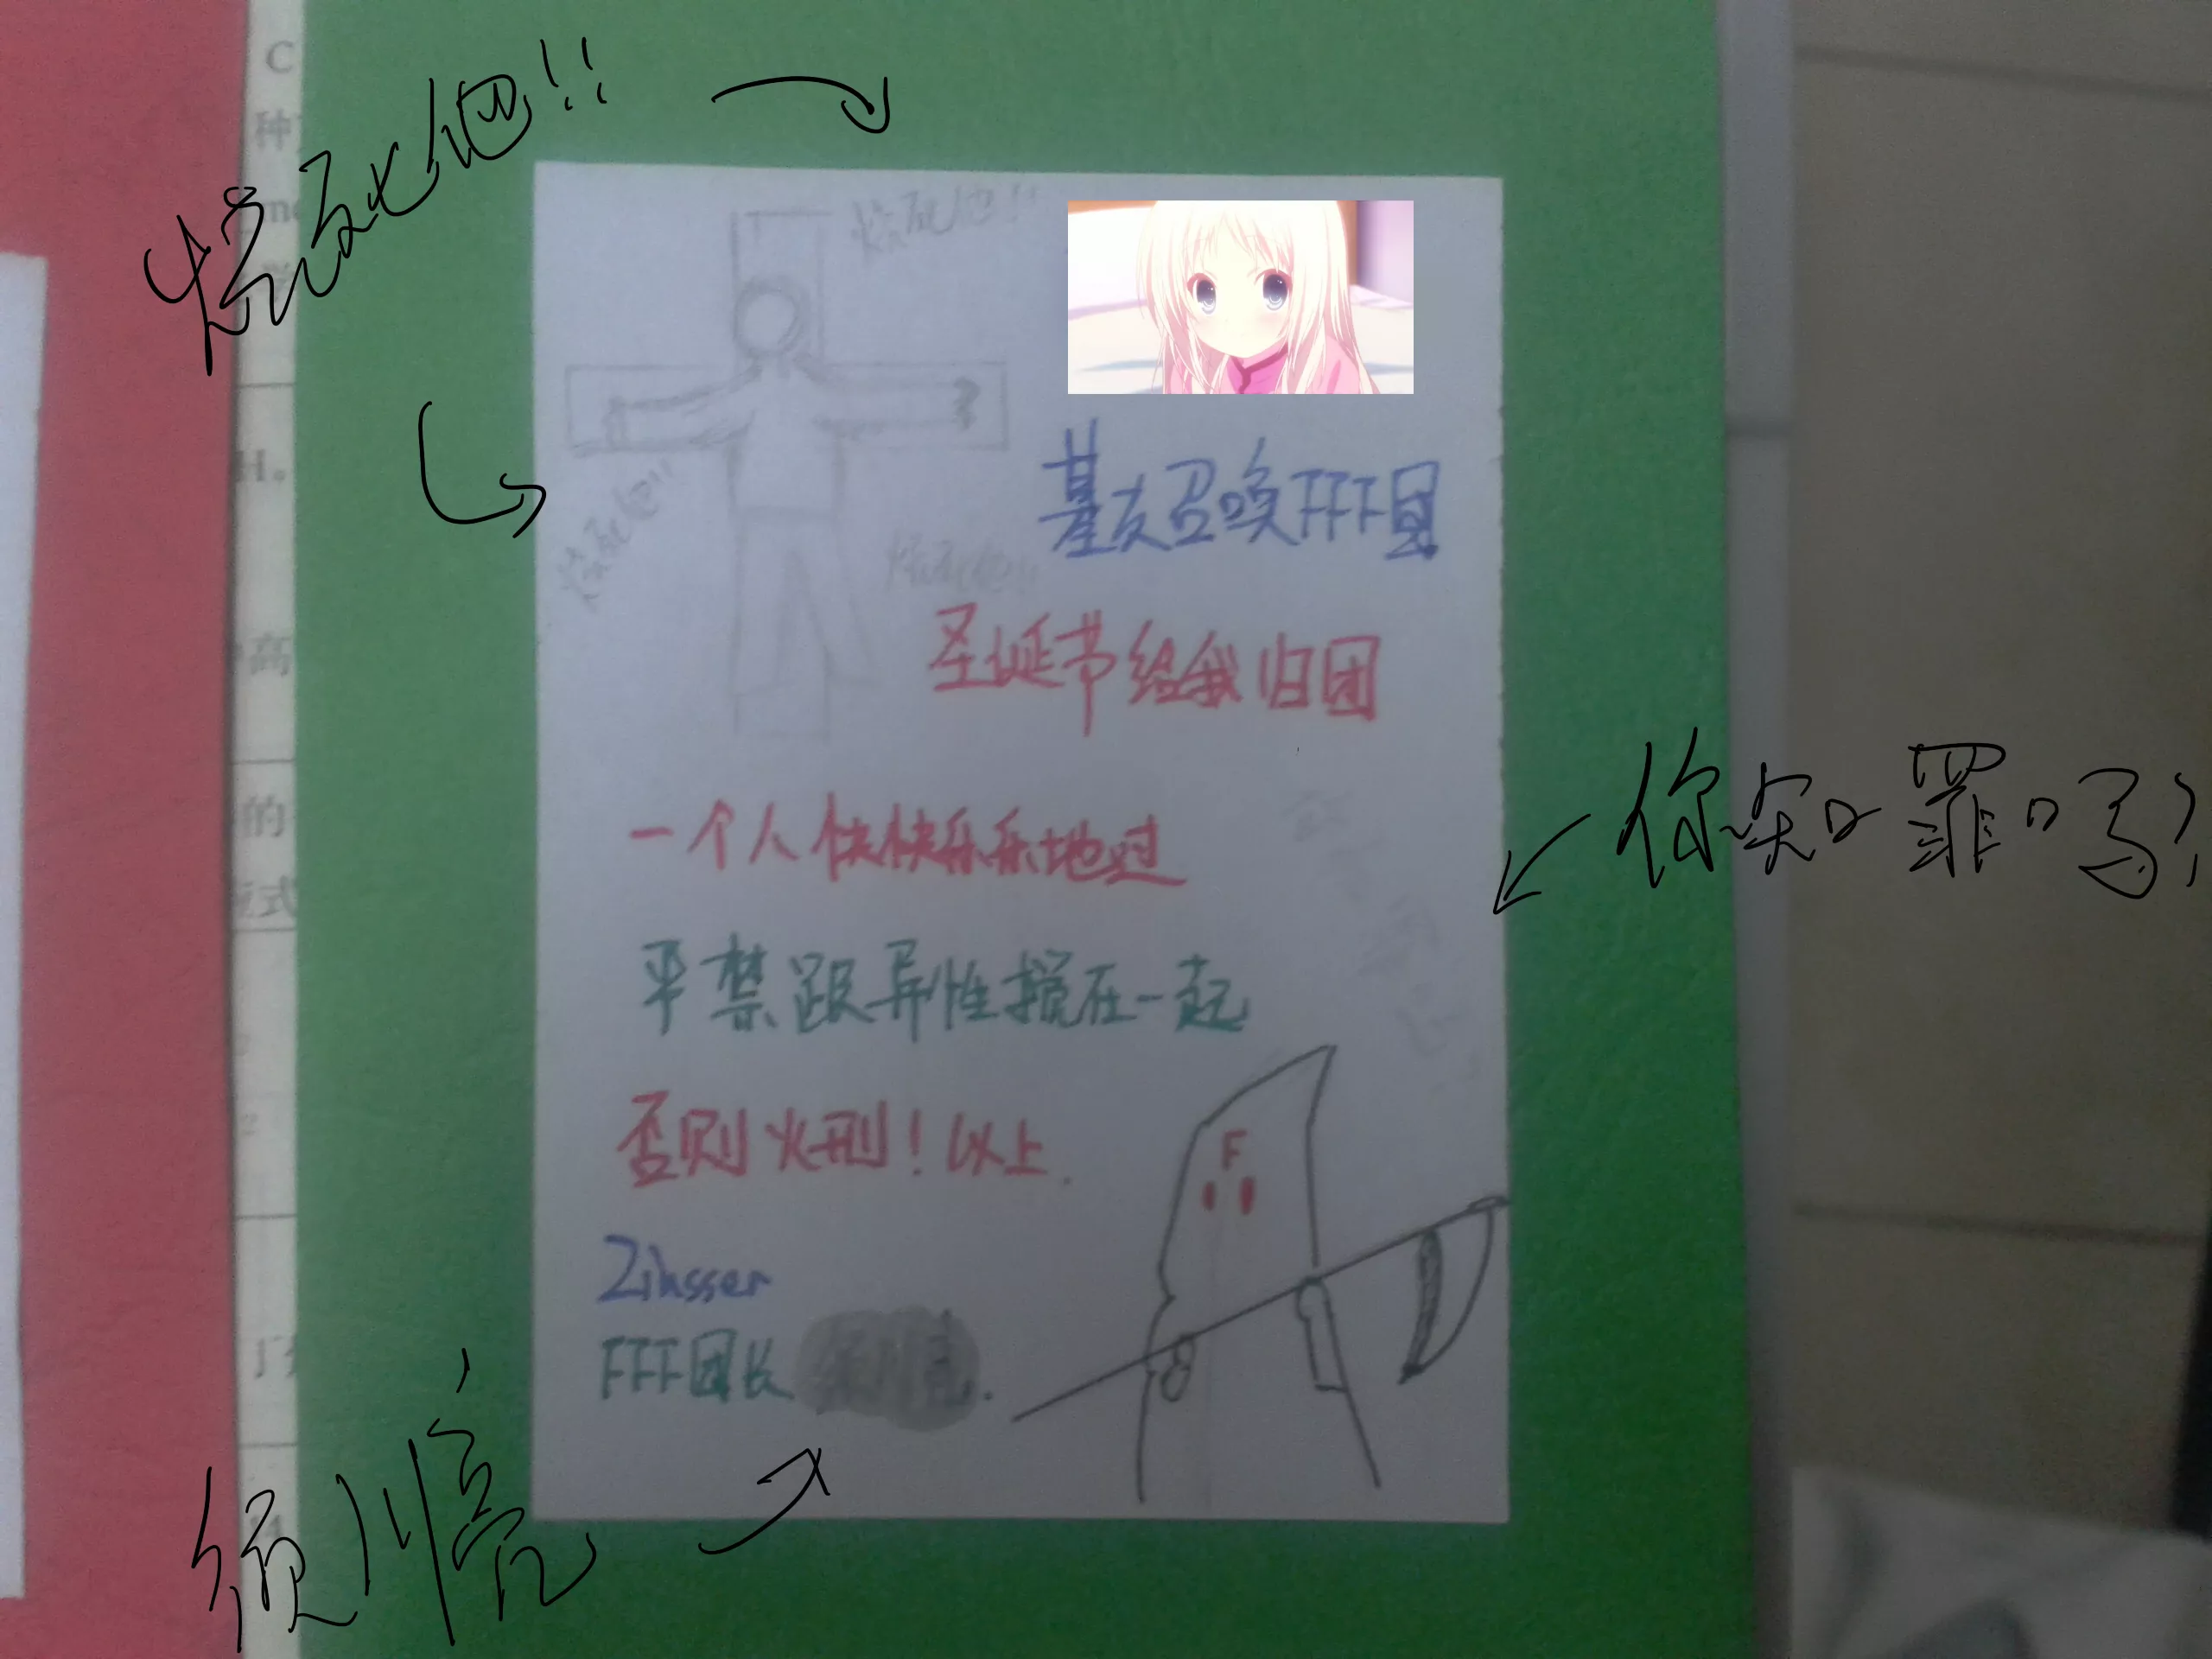 烧死他!!
烧死他!!
烧死他!!
烧死他!!
基友召唤FFF团
圣诞节给我归团
一个人快快乐乐地过
你知罪吗?
严禁跟异性搅在一起
否则火刑!以上.
F
Zinsser
FFF团长
C
种
H。
高
的
应式